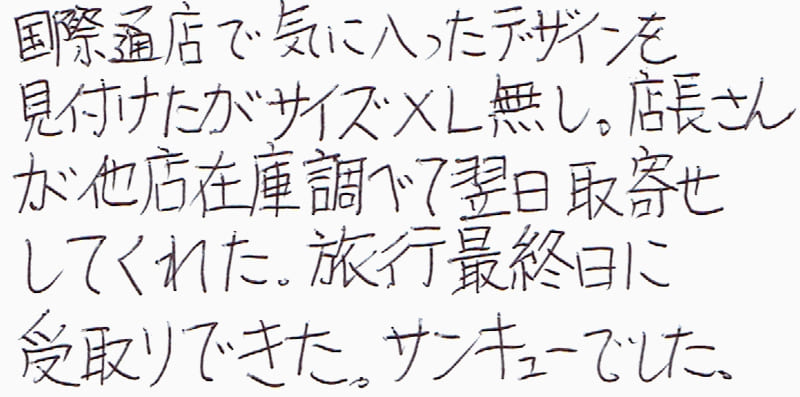 国際通店で気に入ったデザインを
見付けたがサイズXL無し。店長さん
が他店在庫調べて翌日取寄せ
してくれた。旅行最終日に
受取りできた。サンキューでした。